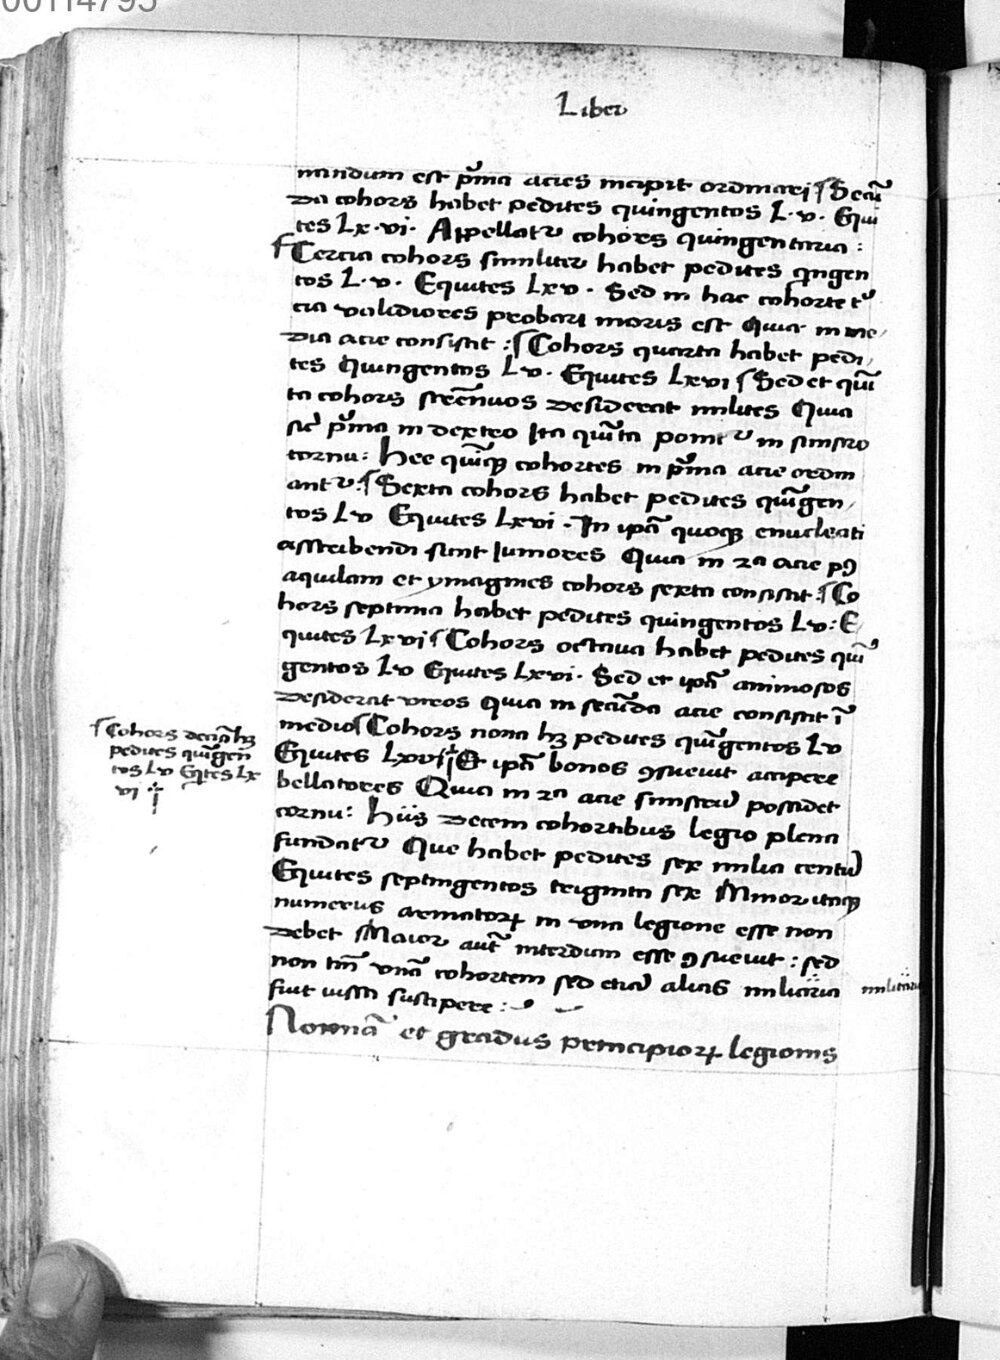 00114795
Liber
nandum est p̄ma acies incipit ordinari Secū
da cohors habet pedites quingentos L·v· Equi
tes Lx·vi· Appellatr cohors quingentaria :
Tercia cohors similiter habet pedites qngen
tos L·v· Equites Lxv· Sed in hac cohorte t
cia validiores probari moris est Quia in me
dia acie consistit : Cohors quarta habet pedi
tes Quingentos Lv· Equites Lxvi Sed et quī
ta cohors strēnuos desiderat milites Quia
sic p̄ma in dextro Ita quīta ponitr in sinistro
cornu : Hec quīq cohortes in p̄ma acie ordin
antr : Sexta cohors habet pedites quīgen
tos Lv Equites Lxvi· In ipā quoq enucleati
asscribendi sunt Iuniores Quia in 2a acie pꝯ
aquilam et ymagines cohors sexta consistit : Co
hors septima habet pedites quingentos Lv : E
quites Lxvi Cohors octaua habet pedites quī
gentos Lv Equites Lxvi· Sed et ipā animosos
desiderat viros Quia in secūda acie consistit ī
medio Cohors nona hꝫ pedites quīgentos Lv
Equites Lxvi Et ipā bonos ꝯsueuit accipere
bellatores Quia in 2a acie sinistrū possidet
cornu : Hiis decem cohortibus legio plena
fundatr Que habet pedites sex milia centū
Equites septingentos triginta sex Minor itaq
numerus armatoꝝ in vna legione esse non
debet Maior aut̄ interdum esse ꝯsueuit : sed
non tm̄ vnā cohortem sed etiā alias miliaria
fuit iussa suscipere :
Nomīa et gradus principioꝝ legionis
Cohors decīa hꝫ
pedites quīgen
tos Lv Eqtes Lx
vi